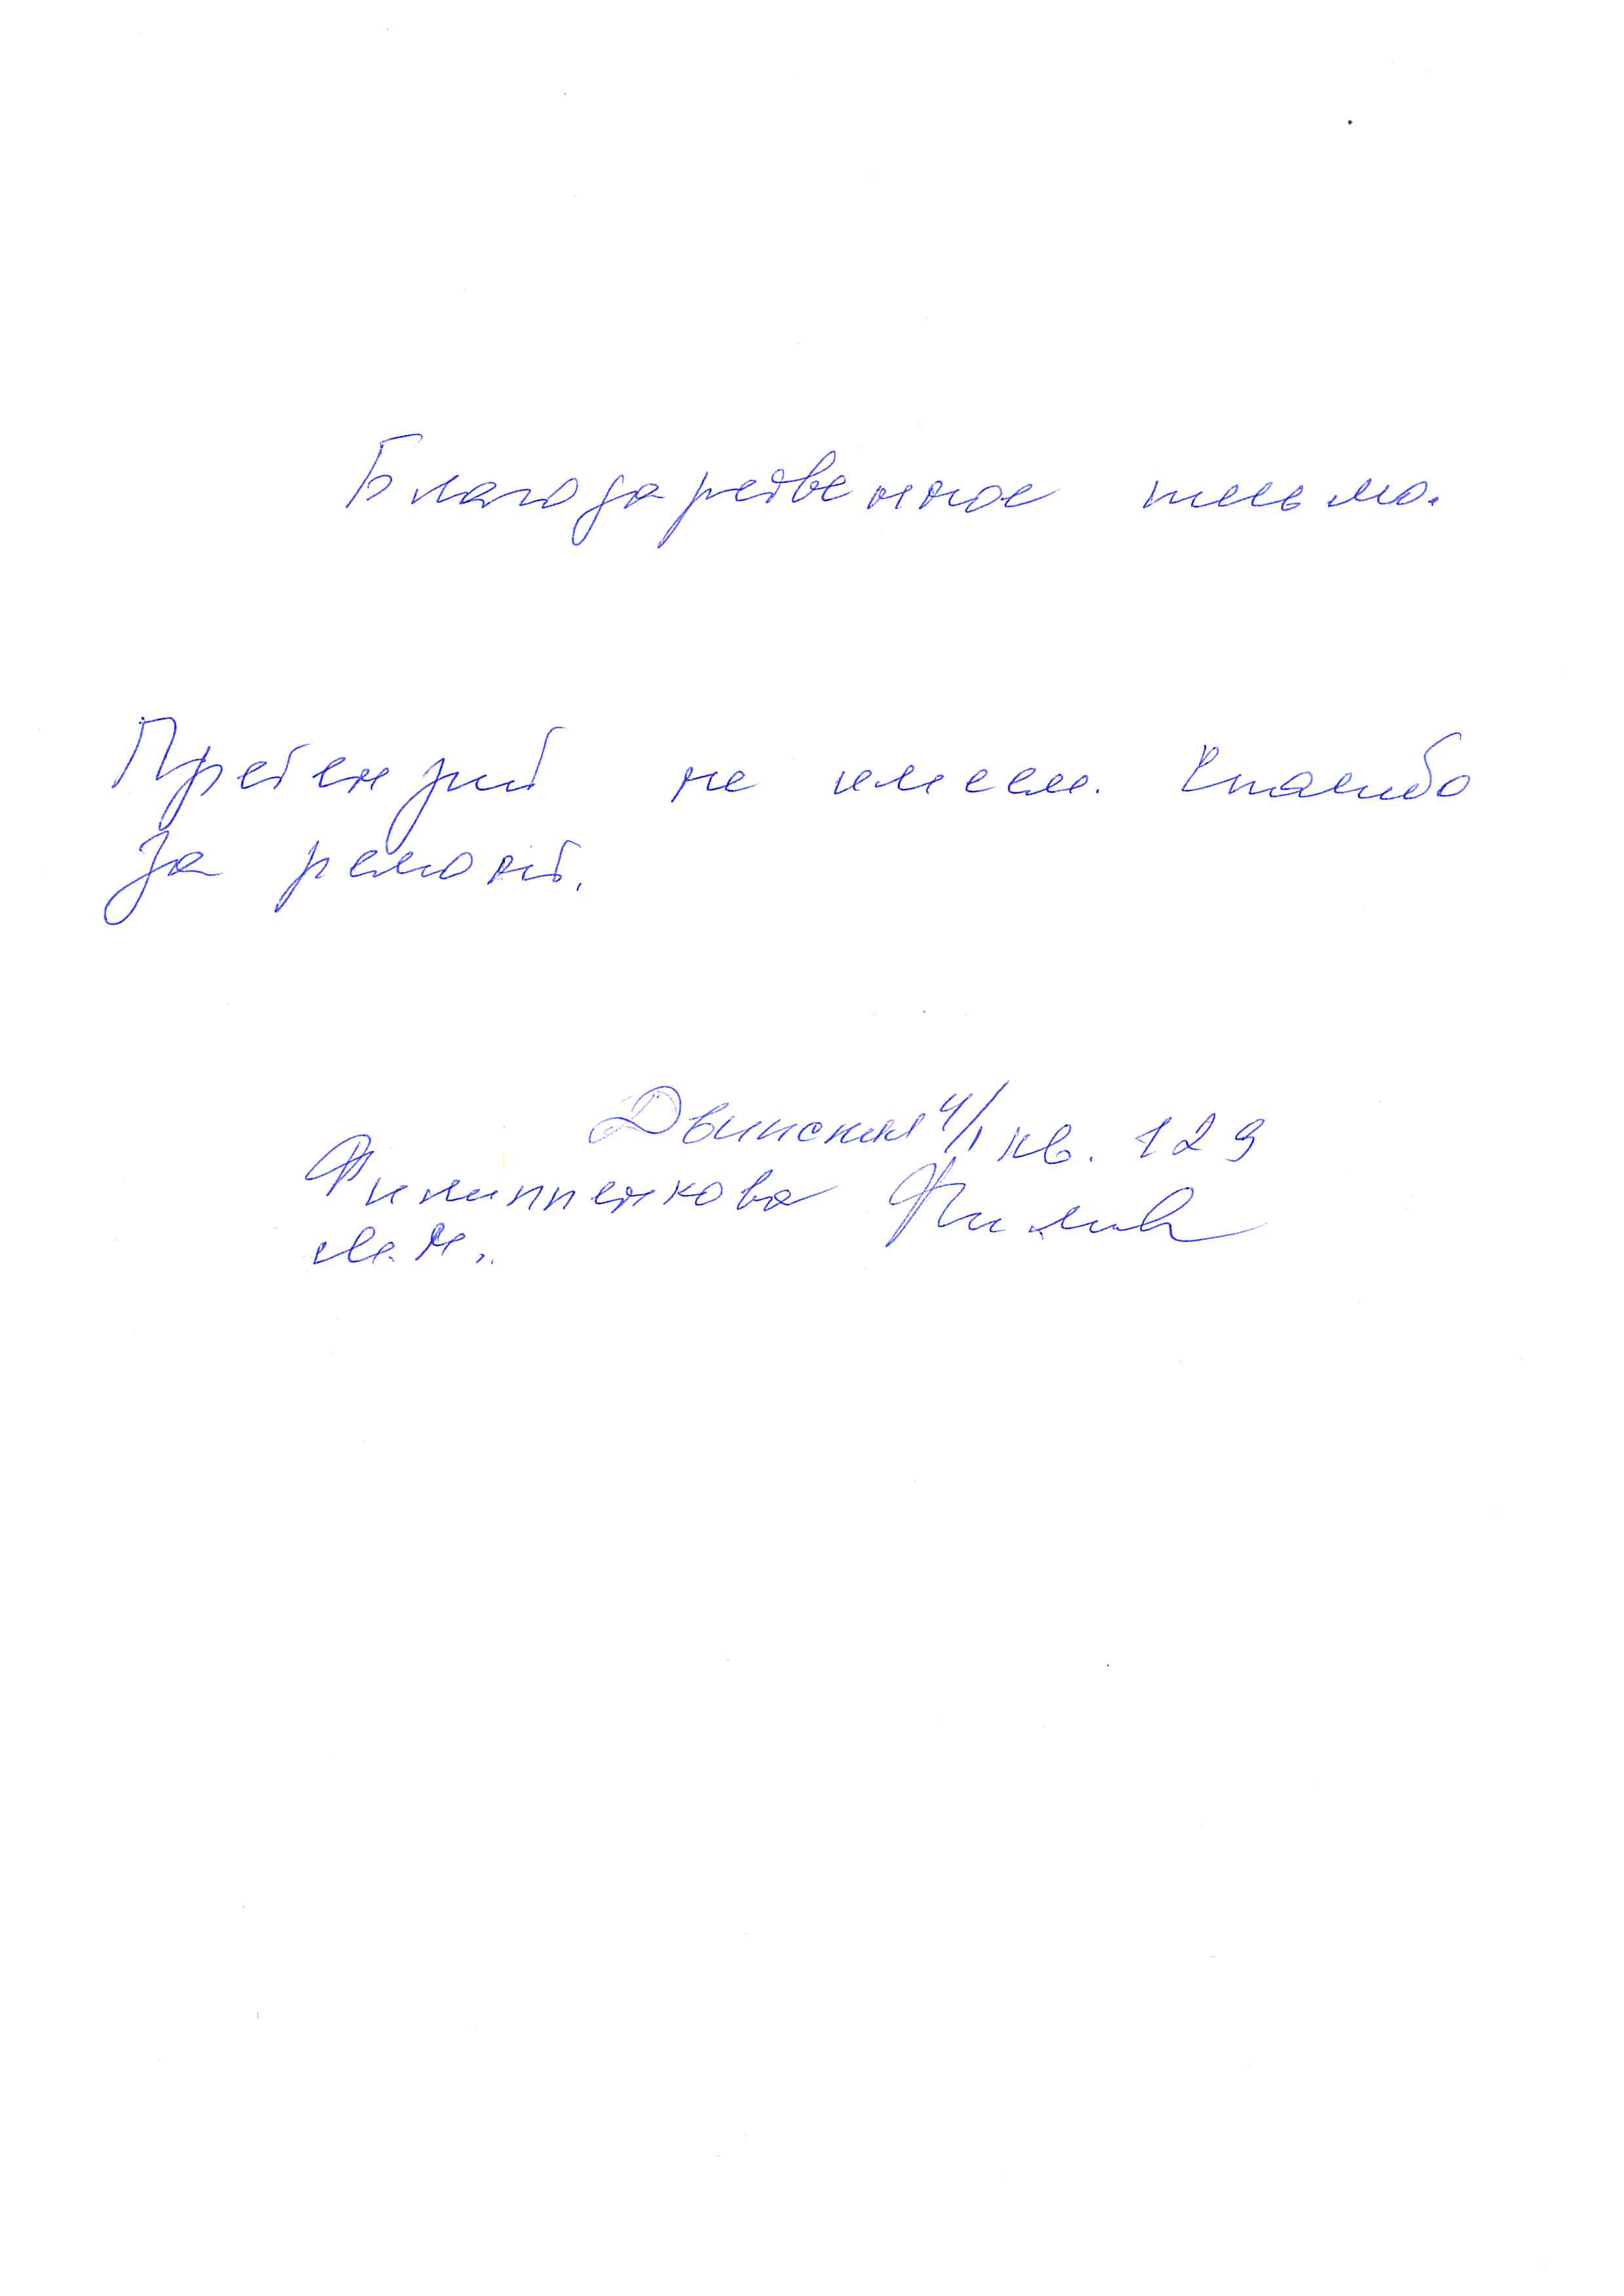 Благодарственное письмо.
Претензий не имеем. Спасибо
за ремонт.
Двинская 4/1 кв. 129
Филиппенкова
М. Н.